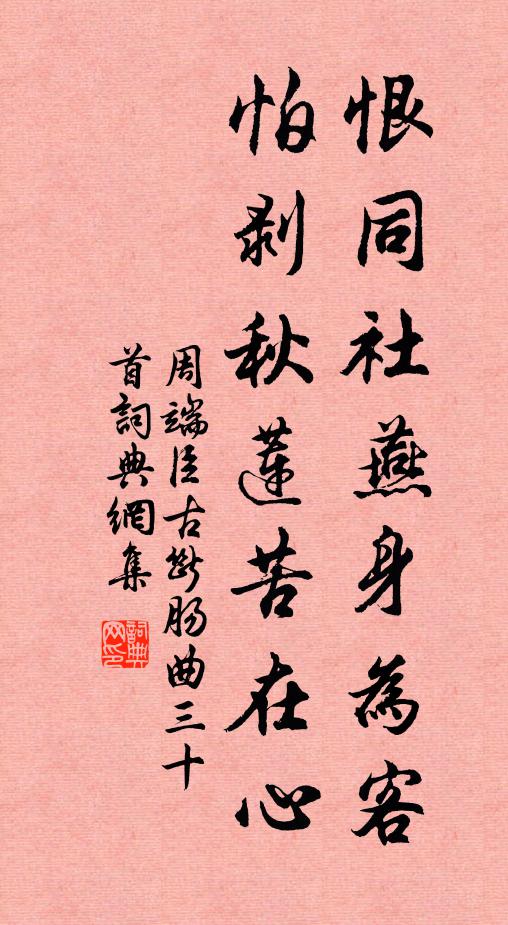 恨同社燕身為客
怕剥秋蓮苦在心
周端臣古斷腸曲三十
首詞典網集
詞典網印